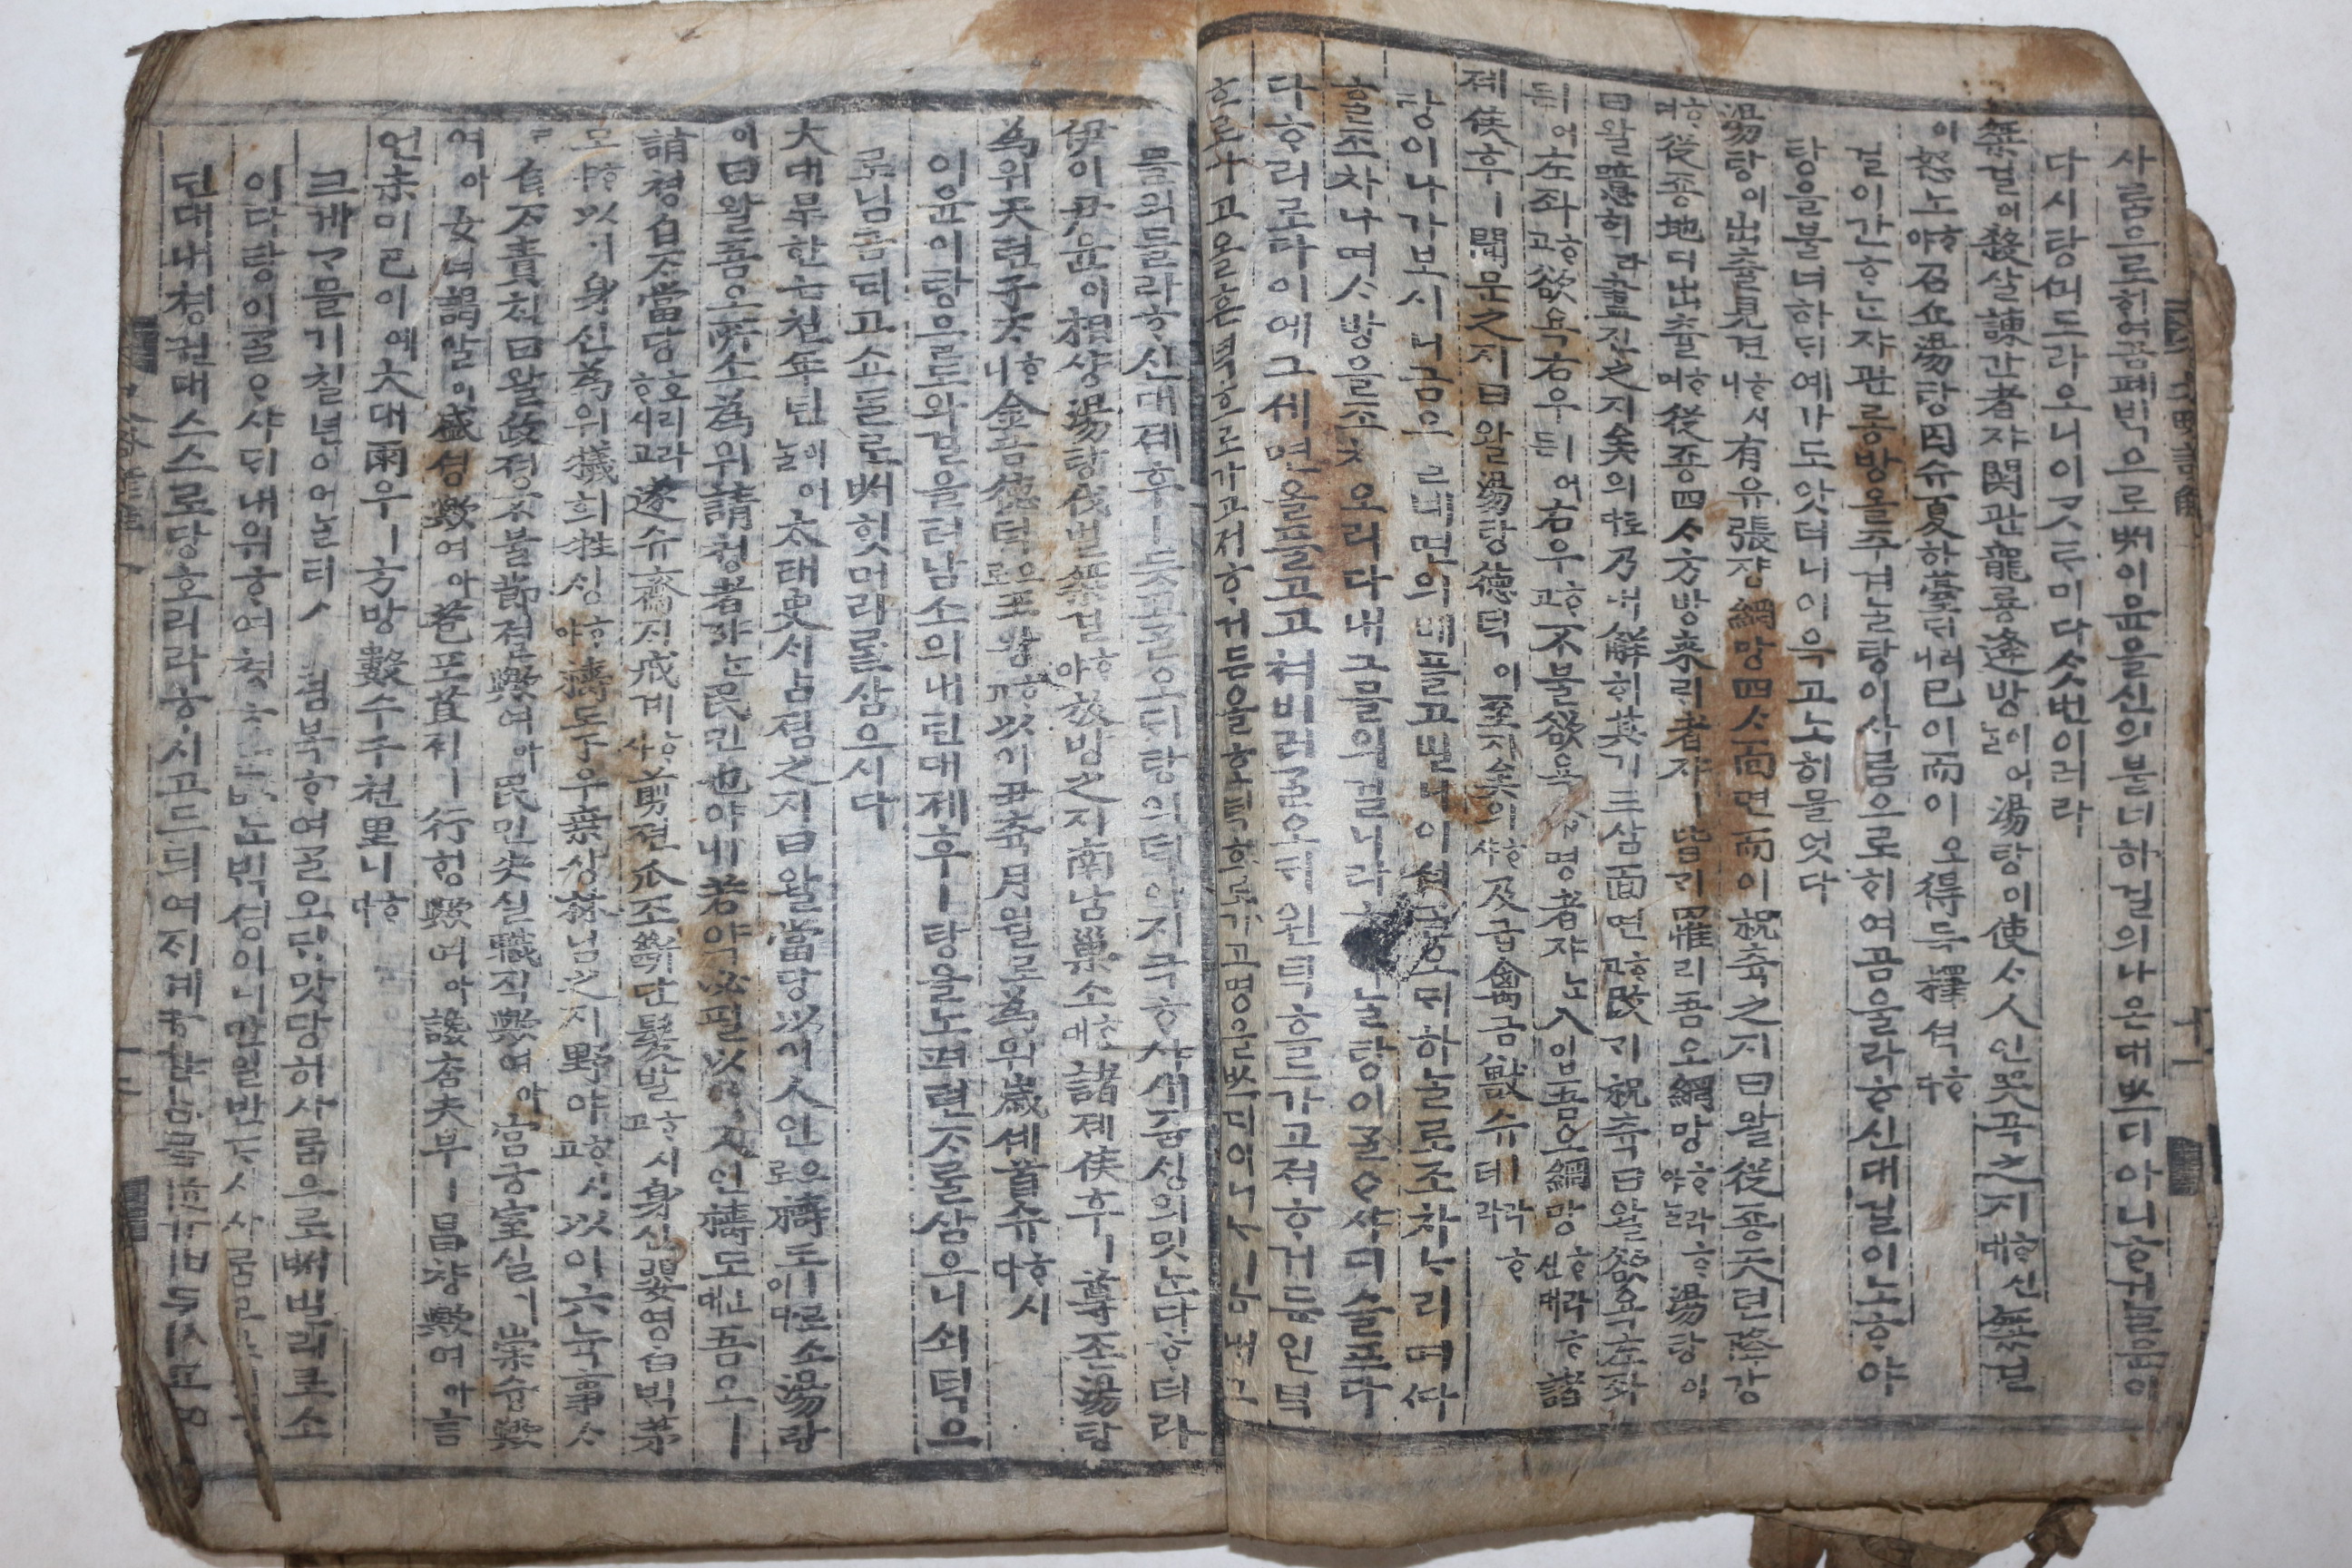 사ᄅᆞᆷ으로히여곰폐ᄇᆡᆨ으로ᄡᅥ이윤을신의블너하걸의나온대ᄡᅳ디아니ᄒᆞ거ᄂᆞᆯ
다시탕ᄭᅴ도라오니이ᄀᆞᆺᄐᆞ미다ᄉᆞᆺ번이러라
桀걸이殺살諫간者쟈關관龍룡逄방이어ᄂᆞᆯ湯탕이使ᄉᆞ人인哭곡之지ᄒᆞ신대桀걸
이怒노ᄒᆞ야召쇼湯탕囚슈夏하臺ᄃᆡ러니已이而이오得득釋셕ᄒᆞ다
걸이간ᄒᆞᄂᆞᆫ쟈관룡방을주겨ᄂᆞᆯ탕이사ᄅᆞᆷ으로히여곰울라ᄒᆞ신대걸이노ᄒᆞ야
탕을불너하ᄃᆡ예가도앗더니이윽고노히믈엇다
湯탕이出츌見견ᄒᆞ시니有유張쟝網망四ᄉᆞ面면而이祝츅之지曰왈從죵天텬降강
ᄒᆞ며從죵地디出츌ᄒᆞ며從죵四ᄉᆞ方방來ᄅᆡ者쟈ㅣ皆ᄀᆡ罹리吾오網망ᄒᆞ라ᄒᆞ야ᄂᆞᆯ湯탕이
曰왈噫희라盡진之지矣의로다乃내解ᄒᆡ其기三삼面면ᄒᆞ고改ᄀᆡ祝츅曰왈欲욕左좌
ᄃᆡ어左좌ᄒᆞ고欲욕右우ᄃᆞᆫᄃᆡ어右우ᄒᆞ고不불欲욕命명者쟈ᄂᆞᆫ入입吾오網망ᄒᆞ라ᄒᆞ신대諸
졔侯후ㅣ聞문之지曰왈湯탕德덕이至지矣의샤及급禽금獸슈ㅣ라ᄒᆞ더라
탕이나가보시니그므ᄅᆞᆯ네면의베플고빌며ᄀᆞᆯ오ᄃᆡ하ᄂᆞᆯ로조차ᄂᆞ리며ᄯᅡ
흘조차나며ᄉᆞ방을조차오리다내그믈의걸니라ᄒᆞ야ᄂᆞᆯ탕이ᄀᆞᆯᄋᆞ샤ᄃᆡ슬프다
다ᄒᆞ리로다이예그세면을플고고쳐비러ᄀᆞᆯ오ᄃᆡ왼ᄃᆡ흐로가고져ᄒᆞ거든왼ᄃᆡ
흐로가고올ᄒᆞᆫ녁흐로가고져ᄒᆞ거든올ᄒᆞᆫᄃᆡ흐로가고명을ᄇᆞ리
믈의들라ᄒᆞ신대졔후ㅣ듯고ᄀᆞᆯ오ᄃᆡ탕의덕이지극ᄒᆞ샤새즘싱의밋ᄂᆞᆫ다ᄒᆞ더라
伊이尹윤이相샹湯탕伐벌桀걸ᄒᆞ야放방之지南남巢소ᄒᆞᆫ대諸졔侯후ㅣ尊존湯탕
爲위天텬子ᄌᆞᄒᆞ니金금德덕으로王왕ᄒᆞ고以이丑츅月월로爲위歲셰首슈ᄒᆞ시다
이윤이탕으로와걸을텨남소의내틴대졔후ㅣ탕을노펴텬ᄌᆞᄅᆞᆯ삼으니쇠덕으
로님금되고소ᄃᆞᆯ로ᄡᅥ힛머리ᄅᆞᆯ삼으시다
大대旱한七칠年년이어ᄂᆞᆯ太태史ᄉᆞㅣ占졈之지曰왈當당以이人인으로禱도ㅣ로소이다湯탕
이曰왈吾오所소爲위請쳥者쟈ᄂᆞᆫ民민也야ㅣ니若약必필以이人인禱도ᅟᅵᆫ대吾오ㅣ
請쳥自ᄌᆞ當당호리라ᄒᆞ시고遂슈齋ᄌᆡ戒계ᄒᆞ샤剪젼爪조斷단髮발ᄒᆞ시고身신嬰영白ᄇᆡᆨ茅
모ᄒᆞ고以이身신爲위犧희牲ᄉᆡᆼᄒᆞ야禱도于우桑상林님之지野야ᄒᆞ시고以이六뉵事ᄉᆞ
로自ᄌᆞ責ᄎᆡᆨ曰왈政졍不불節졀歟여아民민失실職직歟여아宮궁室실이崇숭歟
여아女녀謁알이盛셩歟여아苞포苴져ㅣ行ᄒᆡᆼ歟여아讒참夫부ㅣ昌챵歟여아言
언未미已이예大대雨우ㅣ方방數수千쳔里니ᄒᆞ다
크게ᄀᆞ믈기칠년이어ᄂᆞᆯ태ᄉᆞㅣ졈복ᄒᆞ여ᄀᆞᆯ오ᄃᆡ맛당히사ᄅᆞᆷ으로ᄡᅥ빌리로소
이다탕이ᄀᆞᆯᄋᆞ샤ᄃᆡ내위ᄒᆞ여쳥ᄒᆞᄂᆞᆫ바ᄂᆞᆫᄇᆡᆨ셩이니만일반ᄃᆞ시사ᄅᆞᆷ
딘대내쳥컨대스스로당ᄒᆞ리라ᄒᆞ시고드ᄃᆡ여ᄌᆡ계ᄒᆞ샤